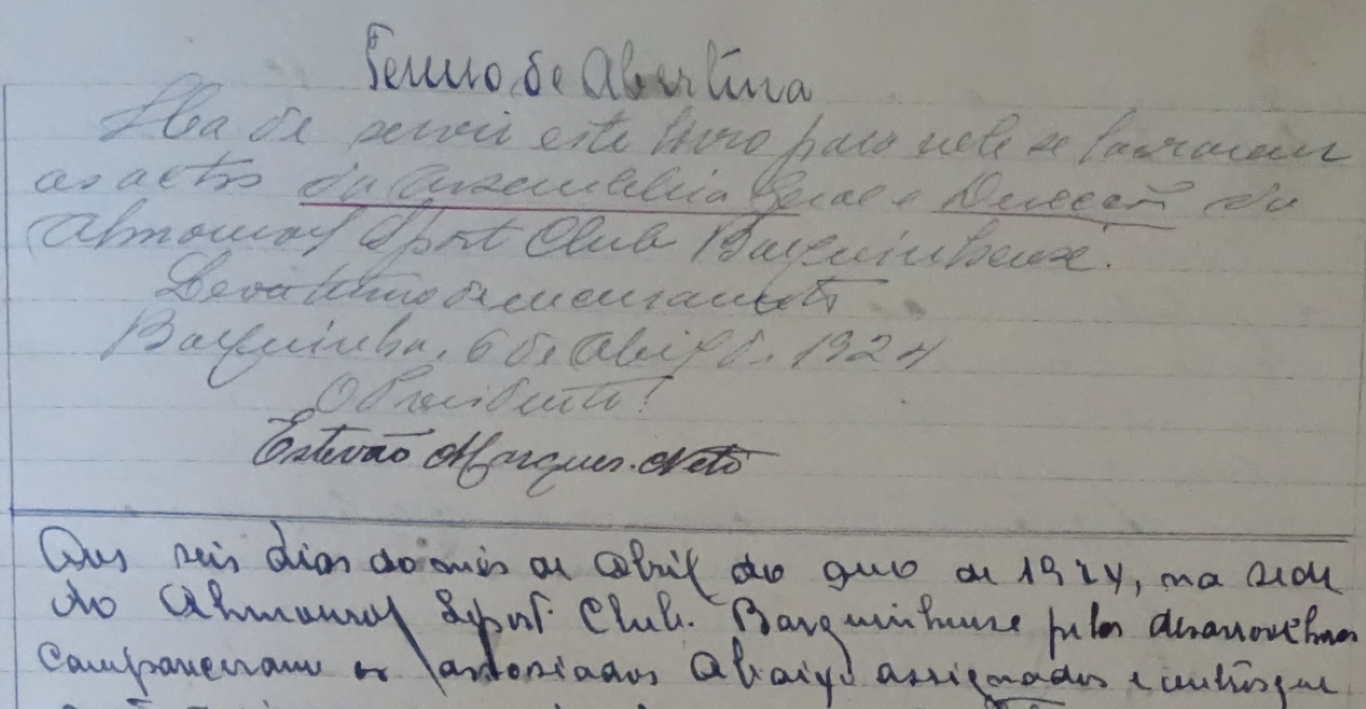 Termo de Abertura
Ha de servir este livro para nele se lavrarem
as actas da Assembleia Geral e Direcção do
Almourol Sport Club Barquinhense.
Leva termo de encerramento
Barquinha, 6 de Abril de 1924
O Presidente!
Estevão Marques Neto
Aos seis dias do mês de Abril do ano de 1924, na sede
do Almourol Sport Club Barquinhense pelas dezanove horas
compareceram os associados abaixo assignados e